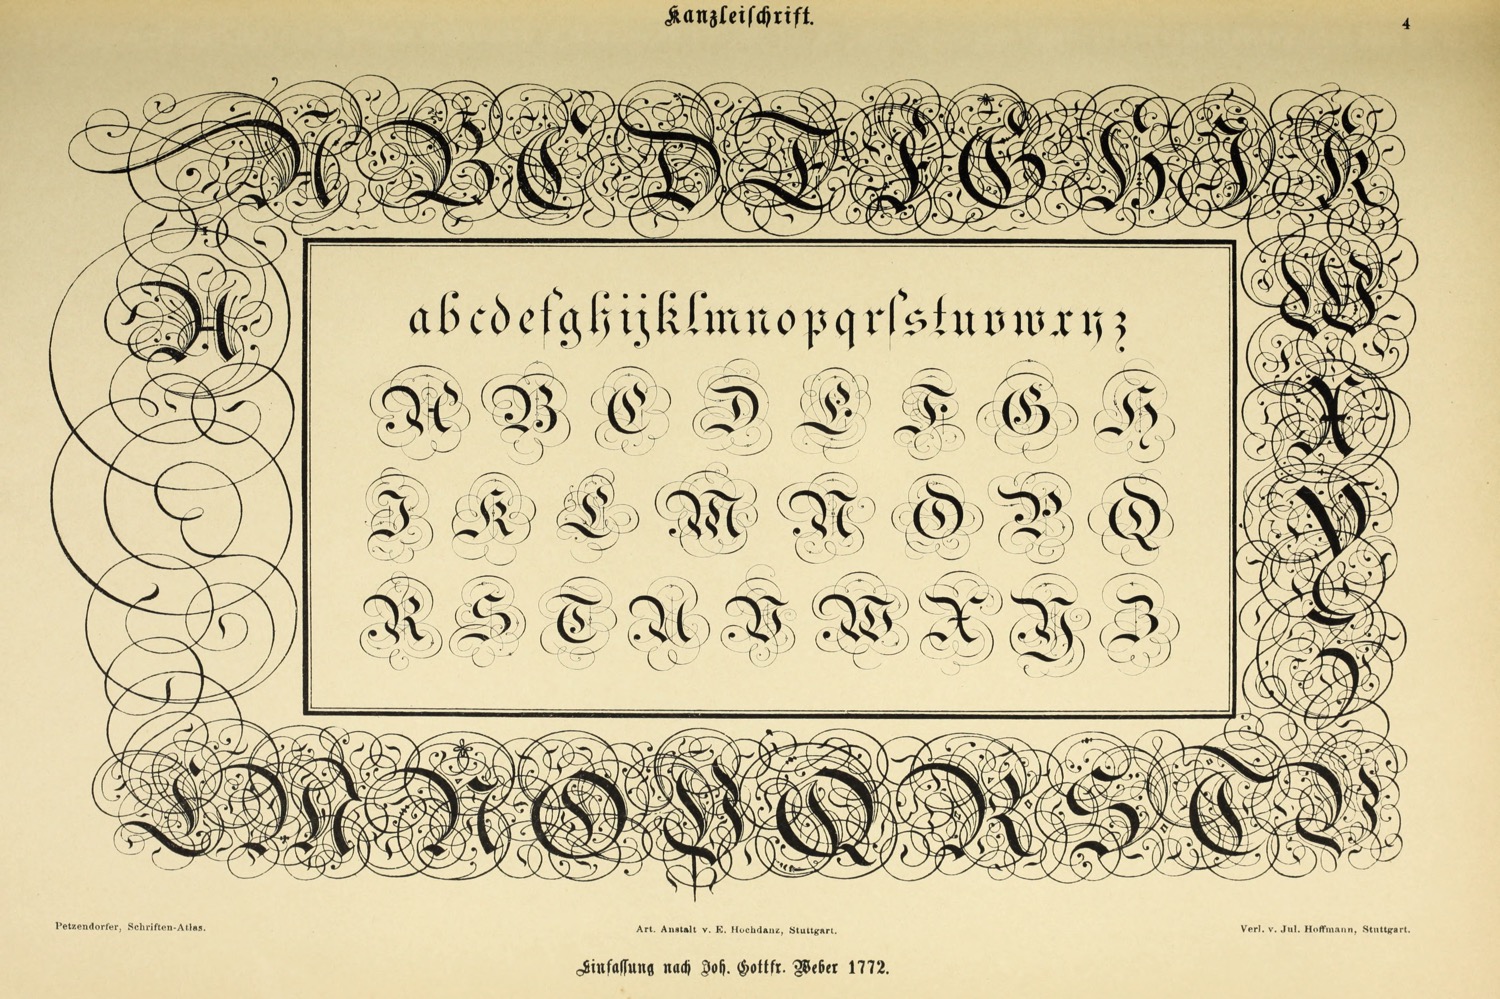 Kanzleiſchrift.
4
A B C D E F G H I K
W
A
a b c d e f g h i j k l m n o p q r ſ s t u v w x y z
A B C D E F G H
X
I K L M N O P Q
Y
R S T U V W X Y Z
L M N O P Q R S T V
Petzendorfer, Schriften-Atlas.
Art. Anstalt v. E. Hochdanz, Stuttgart.
Verl. v. Jul. Hoffmann, Stuttgart.
Einfaſſung nach Joh. Gottfr. Weber 1772.